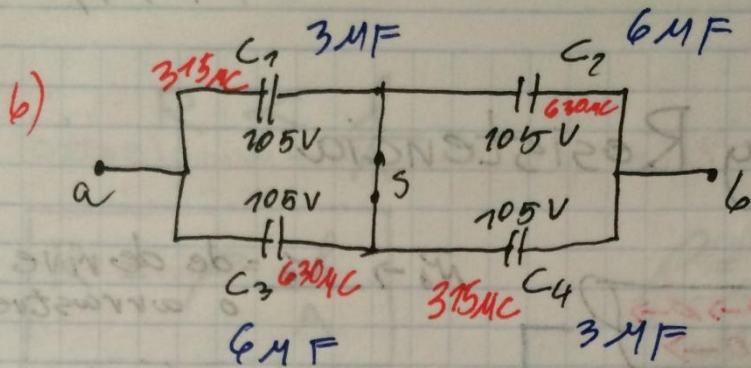 C1 3μF C2 6μF
315μC 630μC
b) 105V 105V
a S b
105V 105V
C3 630μC 315μC C4
6μF 3μF